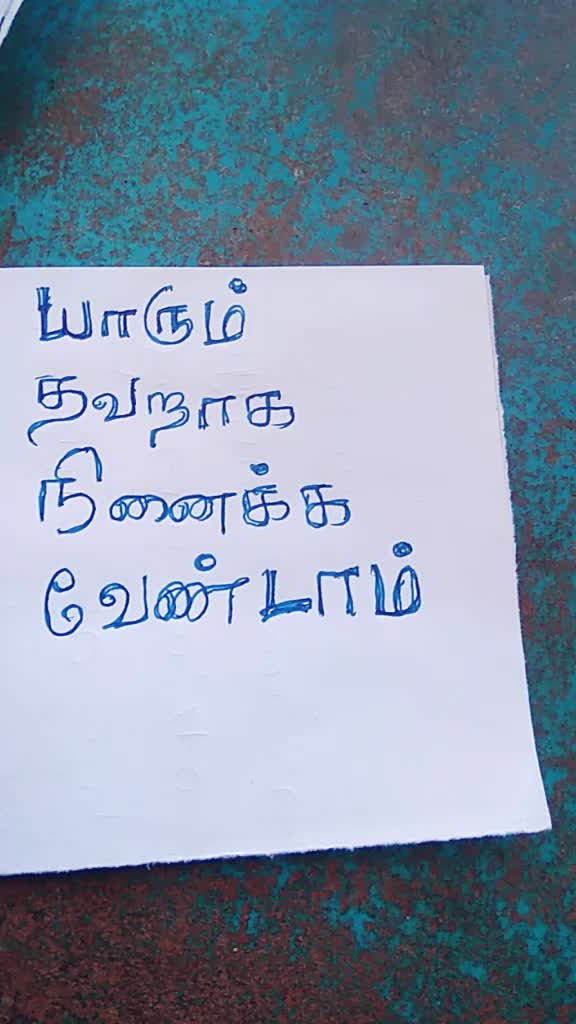 யாரும்
தவறாக
நினைக்க
வேண்டாம்